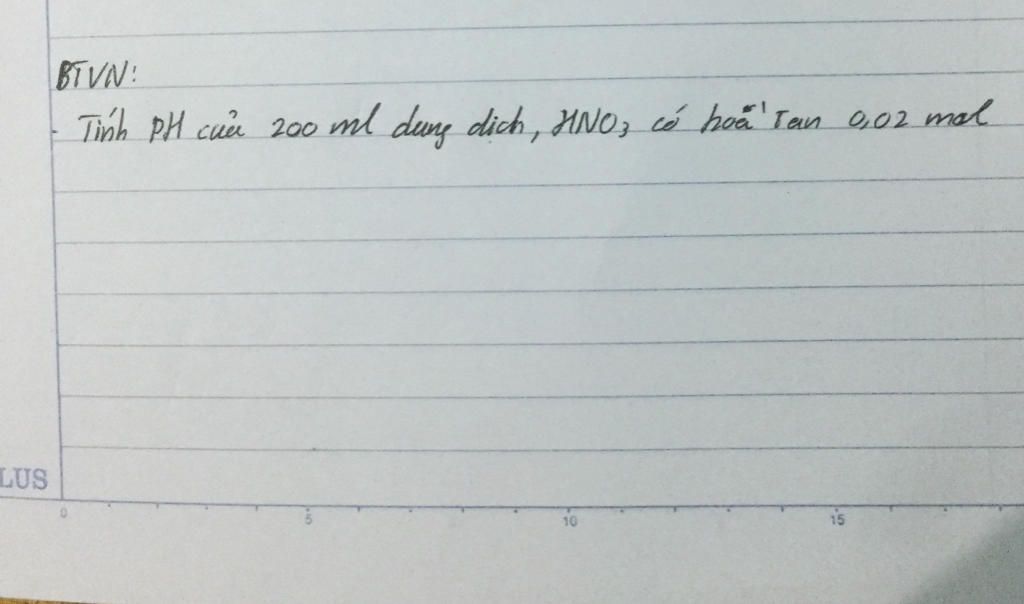 BTVN:
- Tính PH của 200 ml dung dịch, HNO3 có hoà Tan 0,02 mol
LUS
0 5 10 15